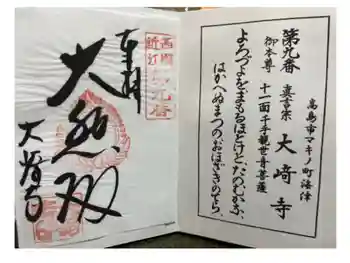 高島市マキノ町海津
第九番 真言宗 大﨑寺
御本尊 十一面千手観世音菩薩
よろづよをまもるほとけとたのむかな、
はかへぬまつのおほざきのてら、
西国
近江
第九番
奉拝
大悲殿
大崎寺